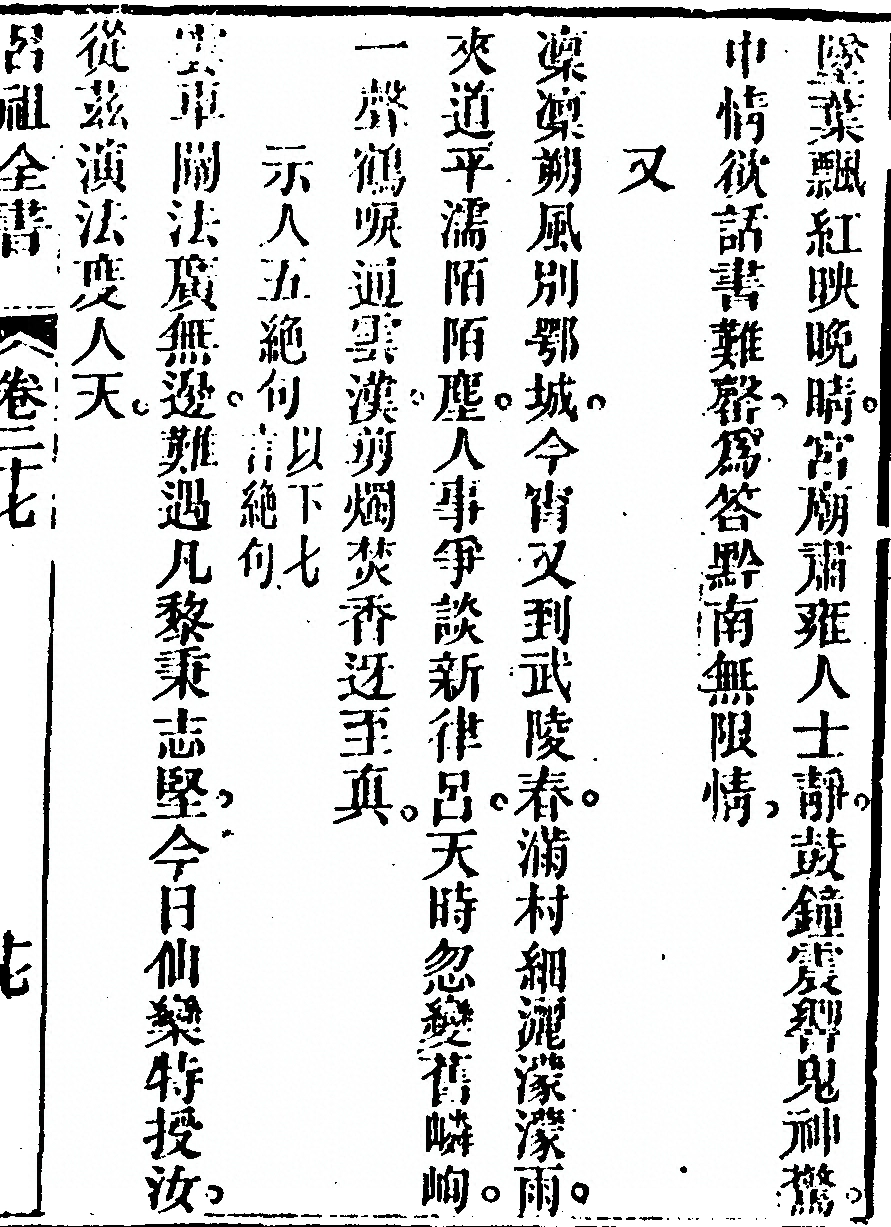 墜葉飄紅映晚晴。宮廟肅雍人士靜。鼓鐘震響鬼神驚。
中情欲話書難罄。爲答黔南無限情。
又
凜凜朔風別鄂城。今宵又到武陵春。滿村細灑濛濛雨。
夾道平濡陌陌塵。人事爭談新律呂。天時忽變舊嶙峋。
一聲鶴唳通雲漢。剪燭焚香迓至真。
示人五絶句 以下七言絶句
雲車開法廣無邊。難遇凡黎秉志堅。今日仙欒特授汝。
從茲演法度人天。
呂祖全書 卷二十七 十七